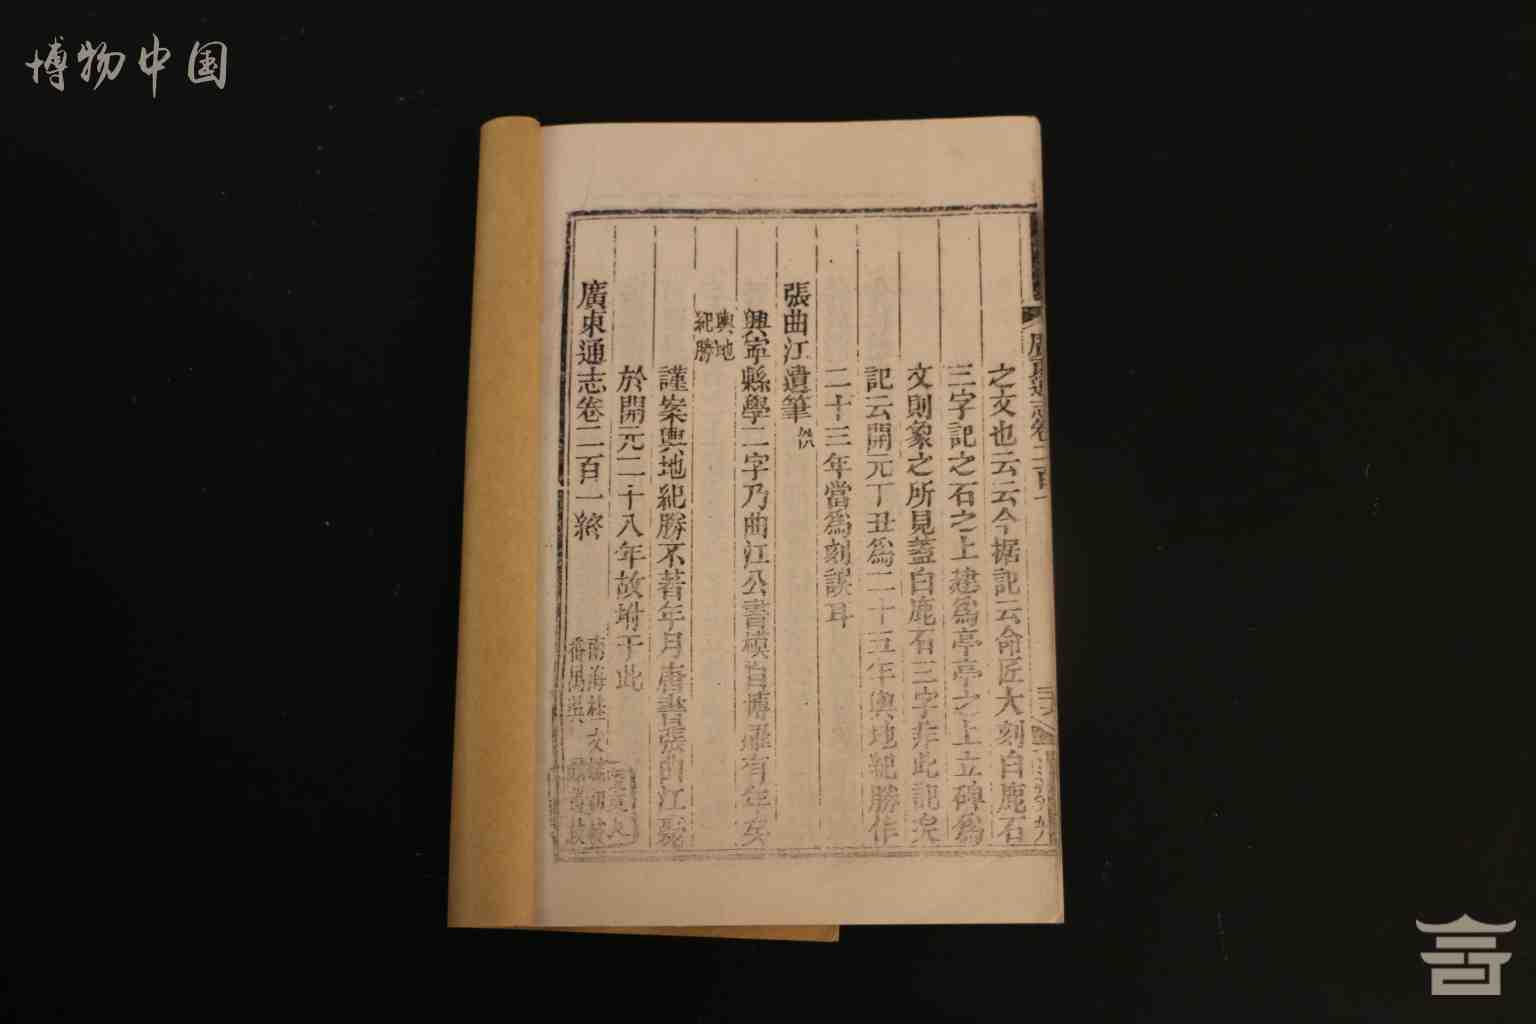 博物中国
之文也云云今据記云命匠大刻白鹿石
三字記之石之上建為亭亭之上立碑為
文則象之所見蓋白鹿石三字非此記矣
記云開元丁丑爲二十五年輿地紀勝作
二十三年當爲刻誤耳
張曲江遺筆 佚
興寧縣學二字乃曲江公書模自博羅有年矣
輿地
紀勝
謹案輿地紀勝不著年月唐書張曲江薨
於開元二十八年故坿于此
廣東通志卷二百一終
南海
番禺
廣東通志卷二百一